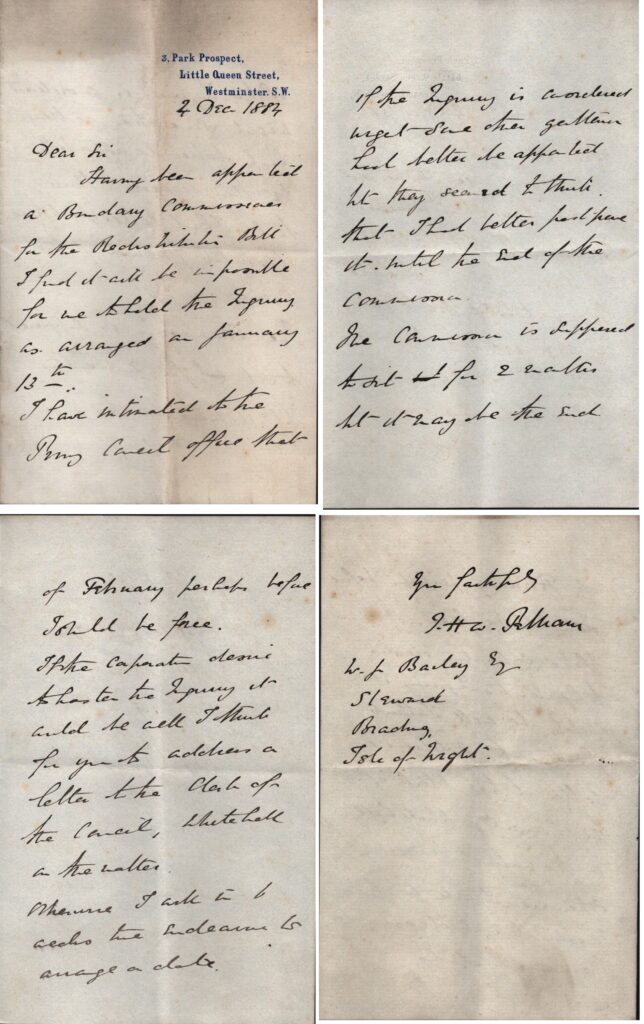 3, Park Prospect,
Little Queen Street,
Westminster. S.W.
2 Dec 1884
Dear Sir
Having been appointed
a Boundary Commissioner
for the Redistribution Bill
I find it will be impossible
for me to hold the Inquiry
as arranged on January
13th.
I have intimated to the
Privy Council office that
if the Inquiry is considered
urgent some other gentleman
had better be appointed
but they seemed to think
that I had better postpone
it until the end of the
Commission.
The Commission is supposed
to sit for 2 months
but it may be the end
of February perhaps before
I should be free.
If the Corporation desire
to hasten the Inquiry it
would be well I think
for you to address a
letter to the Clerk of
the Council, Whitehall
on the matter.
Otherwise I will in 6
weeks time endeavour to
arrange a date.
Yrs faithfully
T. H. W. Pelham
W. J. Bailey Esq
Steward
Brading,
Isle of Wight.